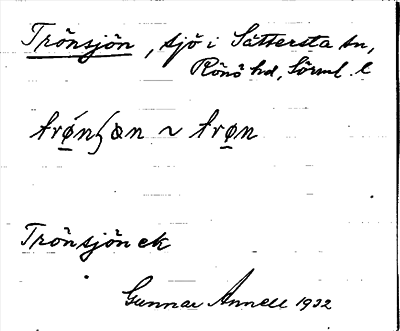 Trönsjön, sjö i Sättersta sn,
Rönö hd, Sörml. l.
trǿnʃøn ~ trøn
Trönsjön ek
Gunnar Annell 1932